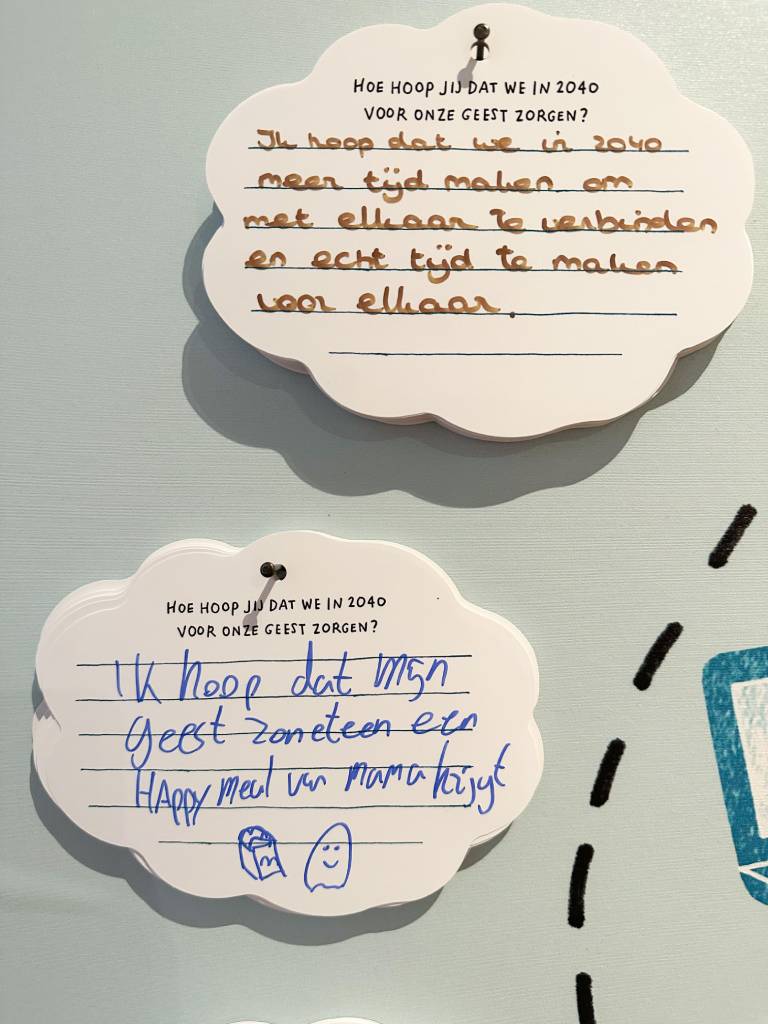 HOE HOOP JIJ DAT WE IN 2040
VOOR ONZE GEEST ZORGEN?
Ik hoop dat we in 2040
meer tijd maken om
met elkaar te verbinden
en echt tijd te maken
voor elkaar.
HOE HOOP JIJ DAT WE IN 2040
VOOR ONZE GEEST ZORGEN?
IK hoop dat mijn
geest zoneteen een
HAppy meal van mama krijgt